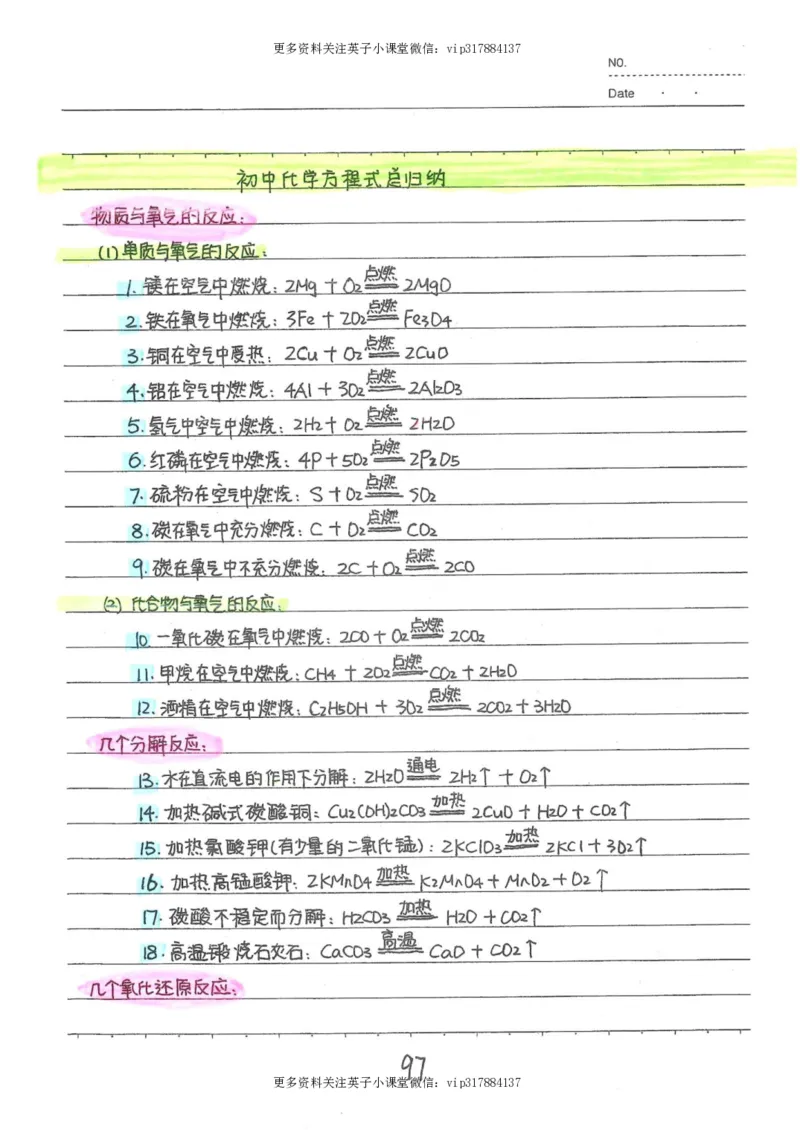 更多资料关注英子小课堂微信：vip317884137
NO.
Date
初中化学方程式总归纳
物质与氧气的反应：
(1)单质与氧气的反应：
1. 镁在空气中燃烧：2Mg + O2 点燃 2MgO
2. 铁在氧气中燃烧：3Fe + 2O2 点燃 Fe3O4
3. 铜在空气中受热：2Cu + O2 点燃 2CuO
4. 铝在空气中燃烧：4Al + 3O2 点燃 2Al2O3
5. 氢气中空气中燃烧：2H2 + O2 点燃 2H2O
6. 红磷在空气中燃烧：4P + 5O2 点燃 2P2O5
7. 硫粉在空气中燃烧：S + O2 点燃 SO2
8. 碳在氧气中充分燃烧：C + O2 点燃 CO2
9. 碳在氧气中不充分燃烧：2C + O2 点燃 2CO
(2) 化合物与氧气的反应：
10. 一氧化碳在氧气中燃烧：2CO + O2 点燃 2CO2
11. 甲烷在空气中燃烧：CH4 + 2O2 点燃 CO2 + 2H2O
12. 酒精在空气中燃烧：C2H5OH + 3O2 点燃 2CO2 + 3H2O
几个分解反应：
13. 水在直流电的作用下分解：2H2O 通电 2H2↑ + O2↑
14. 加热碱式碳酸铜：Cu2(OH)2CO3 加热 2CuO + H2O + CO2↑
15. 加热氯酸钾(有少量的二氧化锰)：2KClO3 加热 2KCl + 3O2↑
16. 加热高锰酸钾：2KMnO4 加热 K2MnO4 + MnO2 + O2↑
17. 碳酸不稳定而分解：H2CO3 加热 H2O + CO2↑
18. 高温锻烧石灰石：CaCO3 高温 CaO + CO2↑
几个氧化还原反应：
97
更多资料关注英子小课堂微信：vip317884137